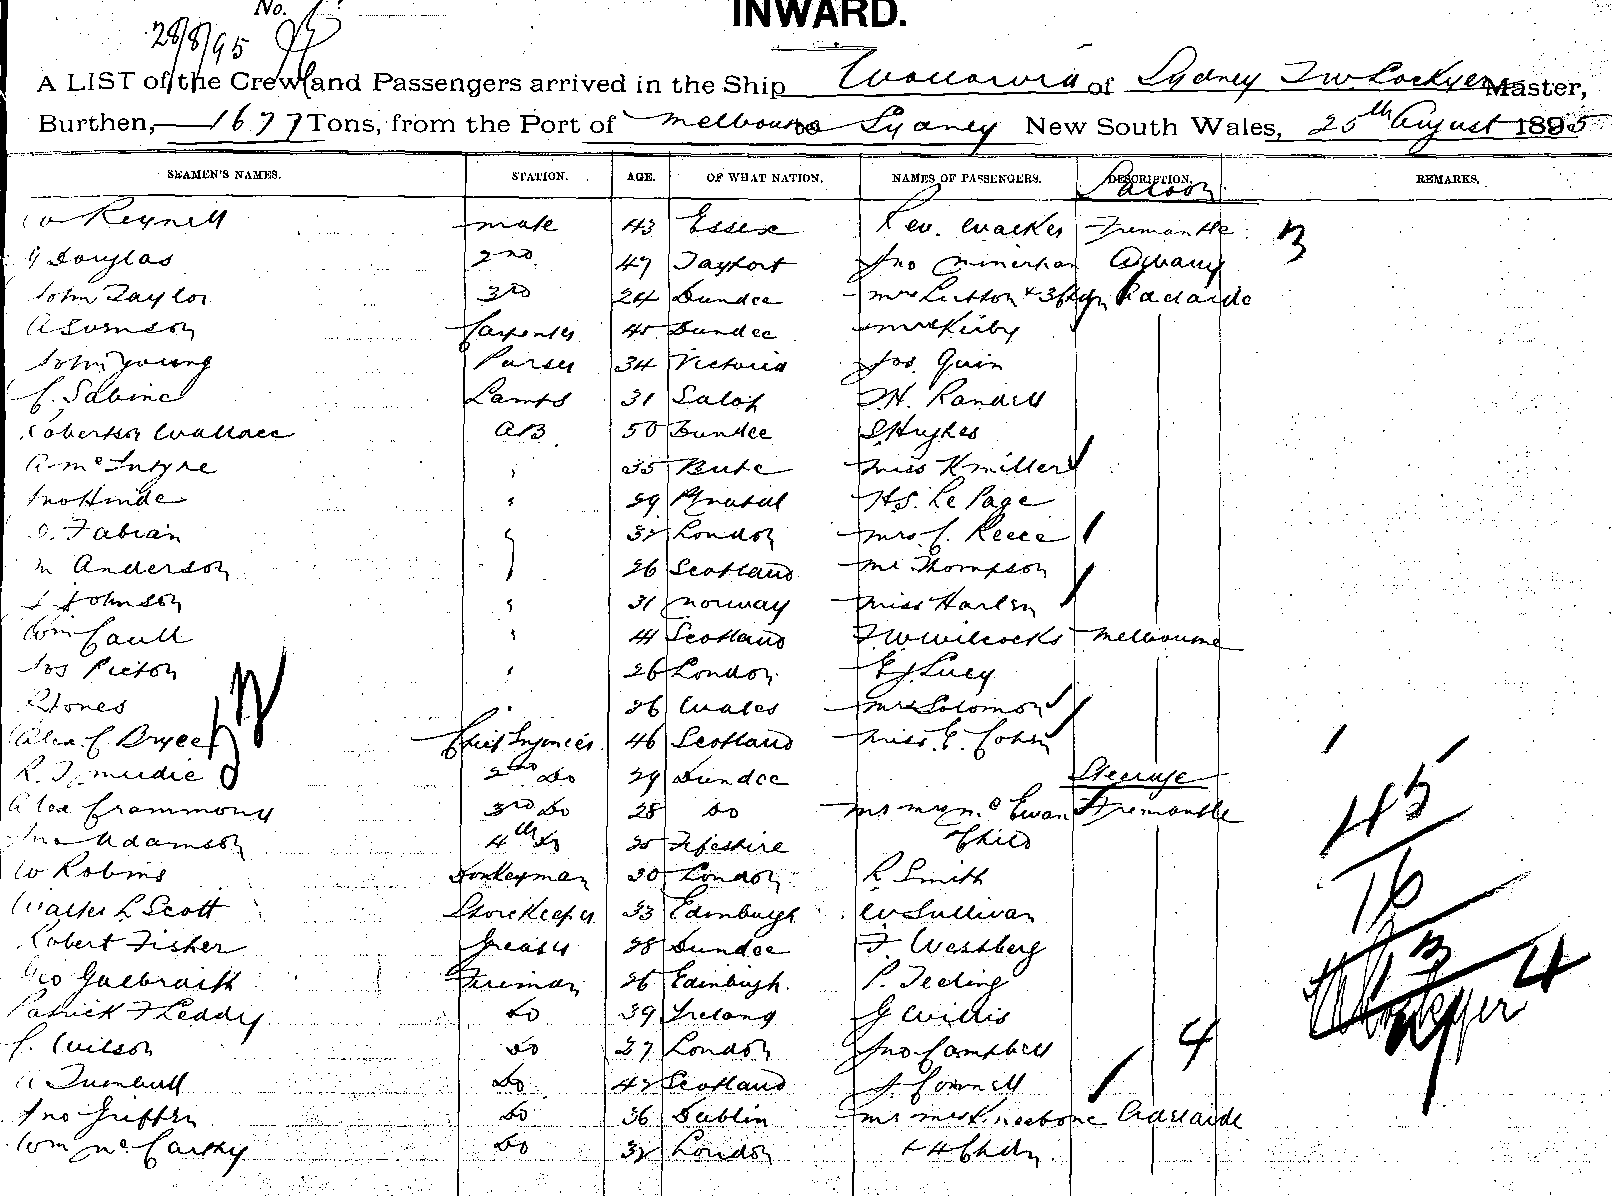 No.
28/8/95
INWARD.
A LIST of the Crew and Passengers arrived in the Ship Wollowra of Sydney J W Lockyer Master,
Burthen, 1677 Tons, from the Port of Melbourne to Sydney New South Wales, 25th August 1895
SEAMEN'S NAMES. STATION. AGE. OF WHAT NATION. NAMES OF PASSENGERS. DESCRIPTION. REMARKS.
Saloon
W Reynell mate 43 Essex Rev. Walker Fremantle
Douglas 2nd 47 Tayport Jno Albany
John Taylor 3rd 24 Dundee Mrs + 3 Adelaide
A Carpenter 45 Dundee Mrs Kirby
John Young Purser 34 Victoria Jos. Quin
C. Sabine Lamps 31 Salop Randell
Robertson Wallace AB 50 Dundee S Hughes
A McIntyre 35 Bute Miss K Miller
Jno Hinde 29 H S. Le Page
Fabian London Mrs C. Reece
Anderson 26 Scotland Mr Thompson
Johnson 31 Norway Miss
Wm Caull 41 Scotland F W Wilcocks Melbourne
Jos Picton 26 London E J Lucy
Jones 26 Wales Mrs Solomon
Alex. C. Bryce Chief Engineer 46 Scotland Miss E. Cohen
R. Mudie 2nd Do 29 Dundee Steerage
Alex Crammond 3rd Do 28 Do Mr Mrs McEwan Fremantle
Jno Adamson 4th Do Fifeshire Child
W Robins Donkeyman 30 London R Smith
Walter L Scott Storekeeper 33 Edinburgh W Sullivan
Robert Fisher Greaser 28 Dundee F Westberg
Geo Galbraith Fireman 26 Edinburgh. P. Teeling
Patrick F Leddy Do 39 Ireland G Willis
C. Wilson Do 27 London Jno Campbell
4
A Turnbull Do Scotland J. Connell
Jno Griffen Do 36 Dublin Mr Mrs Kneebone Adelaide
Wm McCarthy Do London + 4 Chdn.
45
16
3
4